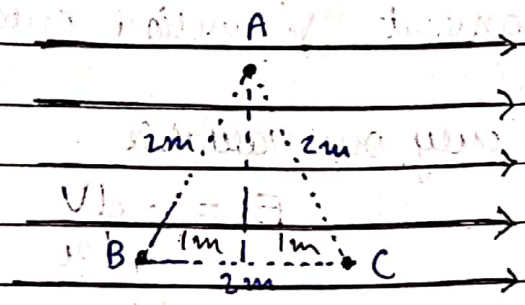 A
2m 2m
1m 1m
B C
2m